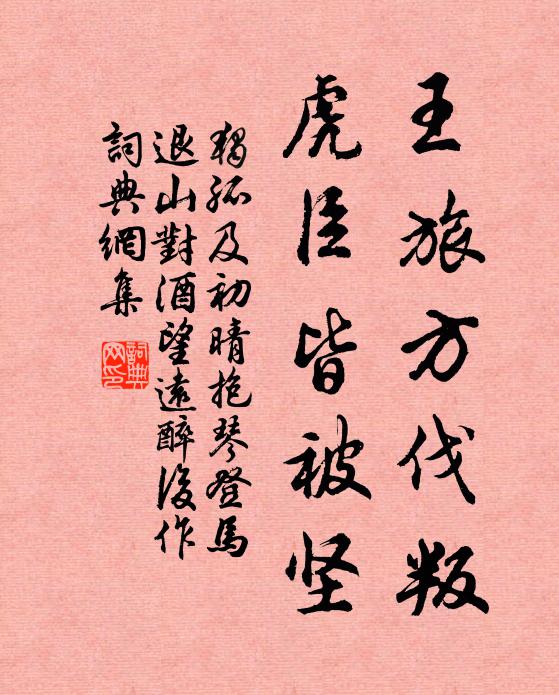 王旅方伐叛
虎臣皆被坚
獨孤及初晴抱琴登馬
退山對酒望遠醉後作
詞典網集
詞典网印